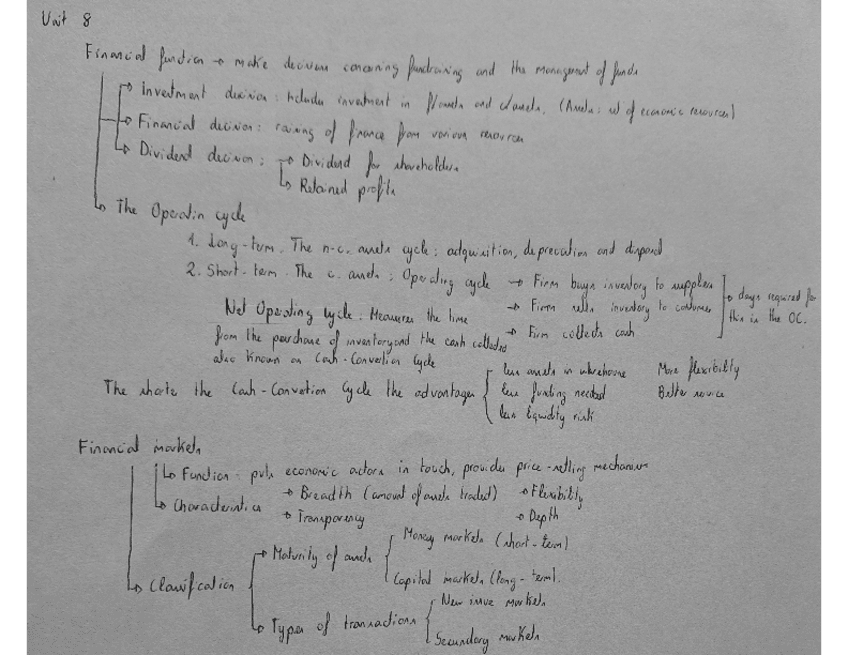 Unit 8
Financial function → make decisions concerning fundraising and the management of funds
Investment decision: Includes investment in F/assets and C/assets. (Assets: set of economic resources)
Financial decision: raising of finance from various resources
Dividend decision: → Dividend for shareholders
Retained profits
The Operatin cycle
1. Long-term. The n-c. assets cycle: adquisition, deprecation and disposal
2. Short-term. The c. assets: Operating cycle → Firm buys inventory to suppliers
→ Firm sells inventory to costumer
→ Firm collects cash
→ days required for
this in the OC.
Net Operating cycle. Measures the time
from the purchase of inventory and the cash collected
also known as Cash-Convertion Cycle
The shorter the Cash-Convertion Cycle the advantages
less assets in warehouse More flexibility
less funding needed Better service
less liquidity risk
Financial markets
Function: puts economic actors in touch, provides price-setting mechanism
Characteristics → Breadth (amount of assets traded) → Flexibility
→ Transparency → Depth
Classification
→ Maturity of assets
Money markets (short-term)
Capital markets (long-term).
Types of transactions
New issue markets
Secundary markets